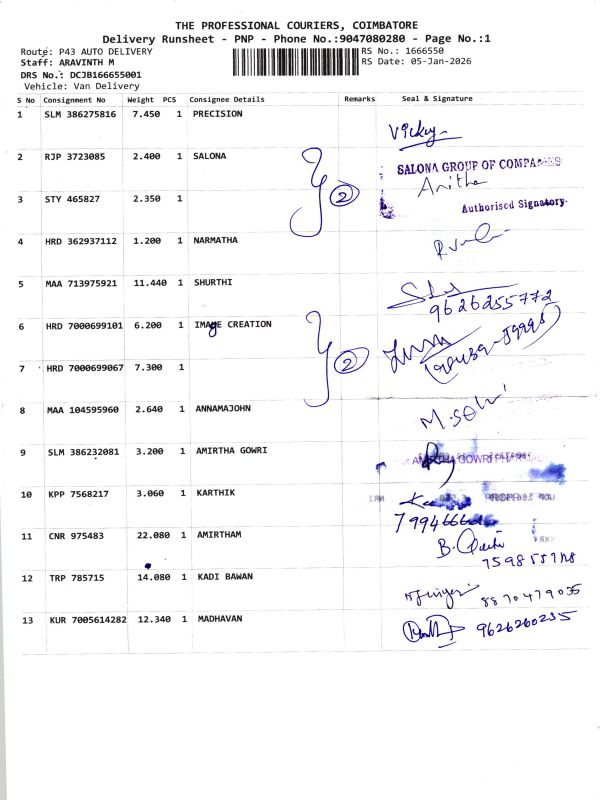 THE PROFESSIONAL COURIERS, COIMBATORE
Delivery Runsheet - PNP - Phone No.:9047080280 - Page No.:1
Route: P43 AUTO DELIVERY
RS No.: 1666550
Staff: ARAVINTH M
RS Date: 05-Jan-2026
DRS No.: DCJB166655001
Vehicle: Van Delivery
S No Consignment No Weight PCS Consignee Details Remarks Seal & Signature
1 SLM 386275816 7.450 1 PRECISION
Vickey
2 RJP 3723085 2.400 1 SALONA
SALONA GROUP OF COMPANIES
Anitha
2
3 STY 465827 2.350 1
Authorised Signatory
4 HRD 362937112 1.200 1 NARMATHA
5 MAA 713975921 11.440 1 SHURTHI
9626255772
6 HRD 7000699101 6.200 1 IMAGE CREATION
2
7 HRD 7000699067 7.300 1
8 MAA 104595960 2.640 1 ANNAMAJOHN
M. Selvi
9 SLM 386232081 3.200 1 AMIRTHA GOWRI
10 KPP 7568217 3.060 1 KARTHIK
11 CNR 975483 22.080 1 AMIRTHAM
12 TRP 785715 14.080 1 KADI BAWAN
8870479035
13 KUR 7005614282 12.340 1 MADHAVAN
9626260235